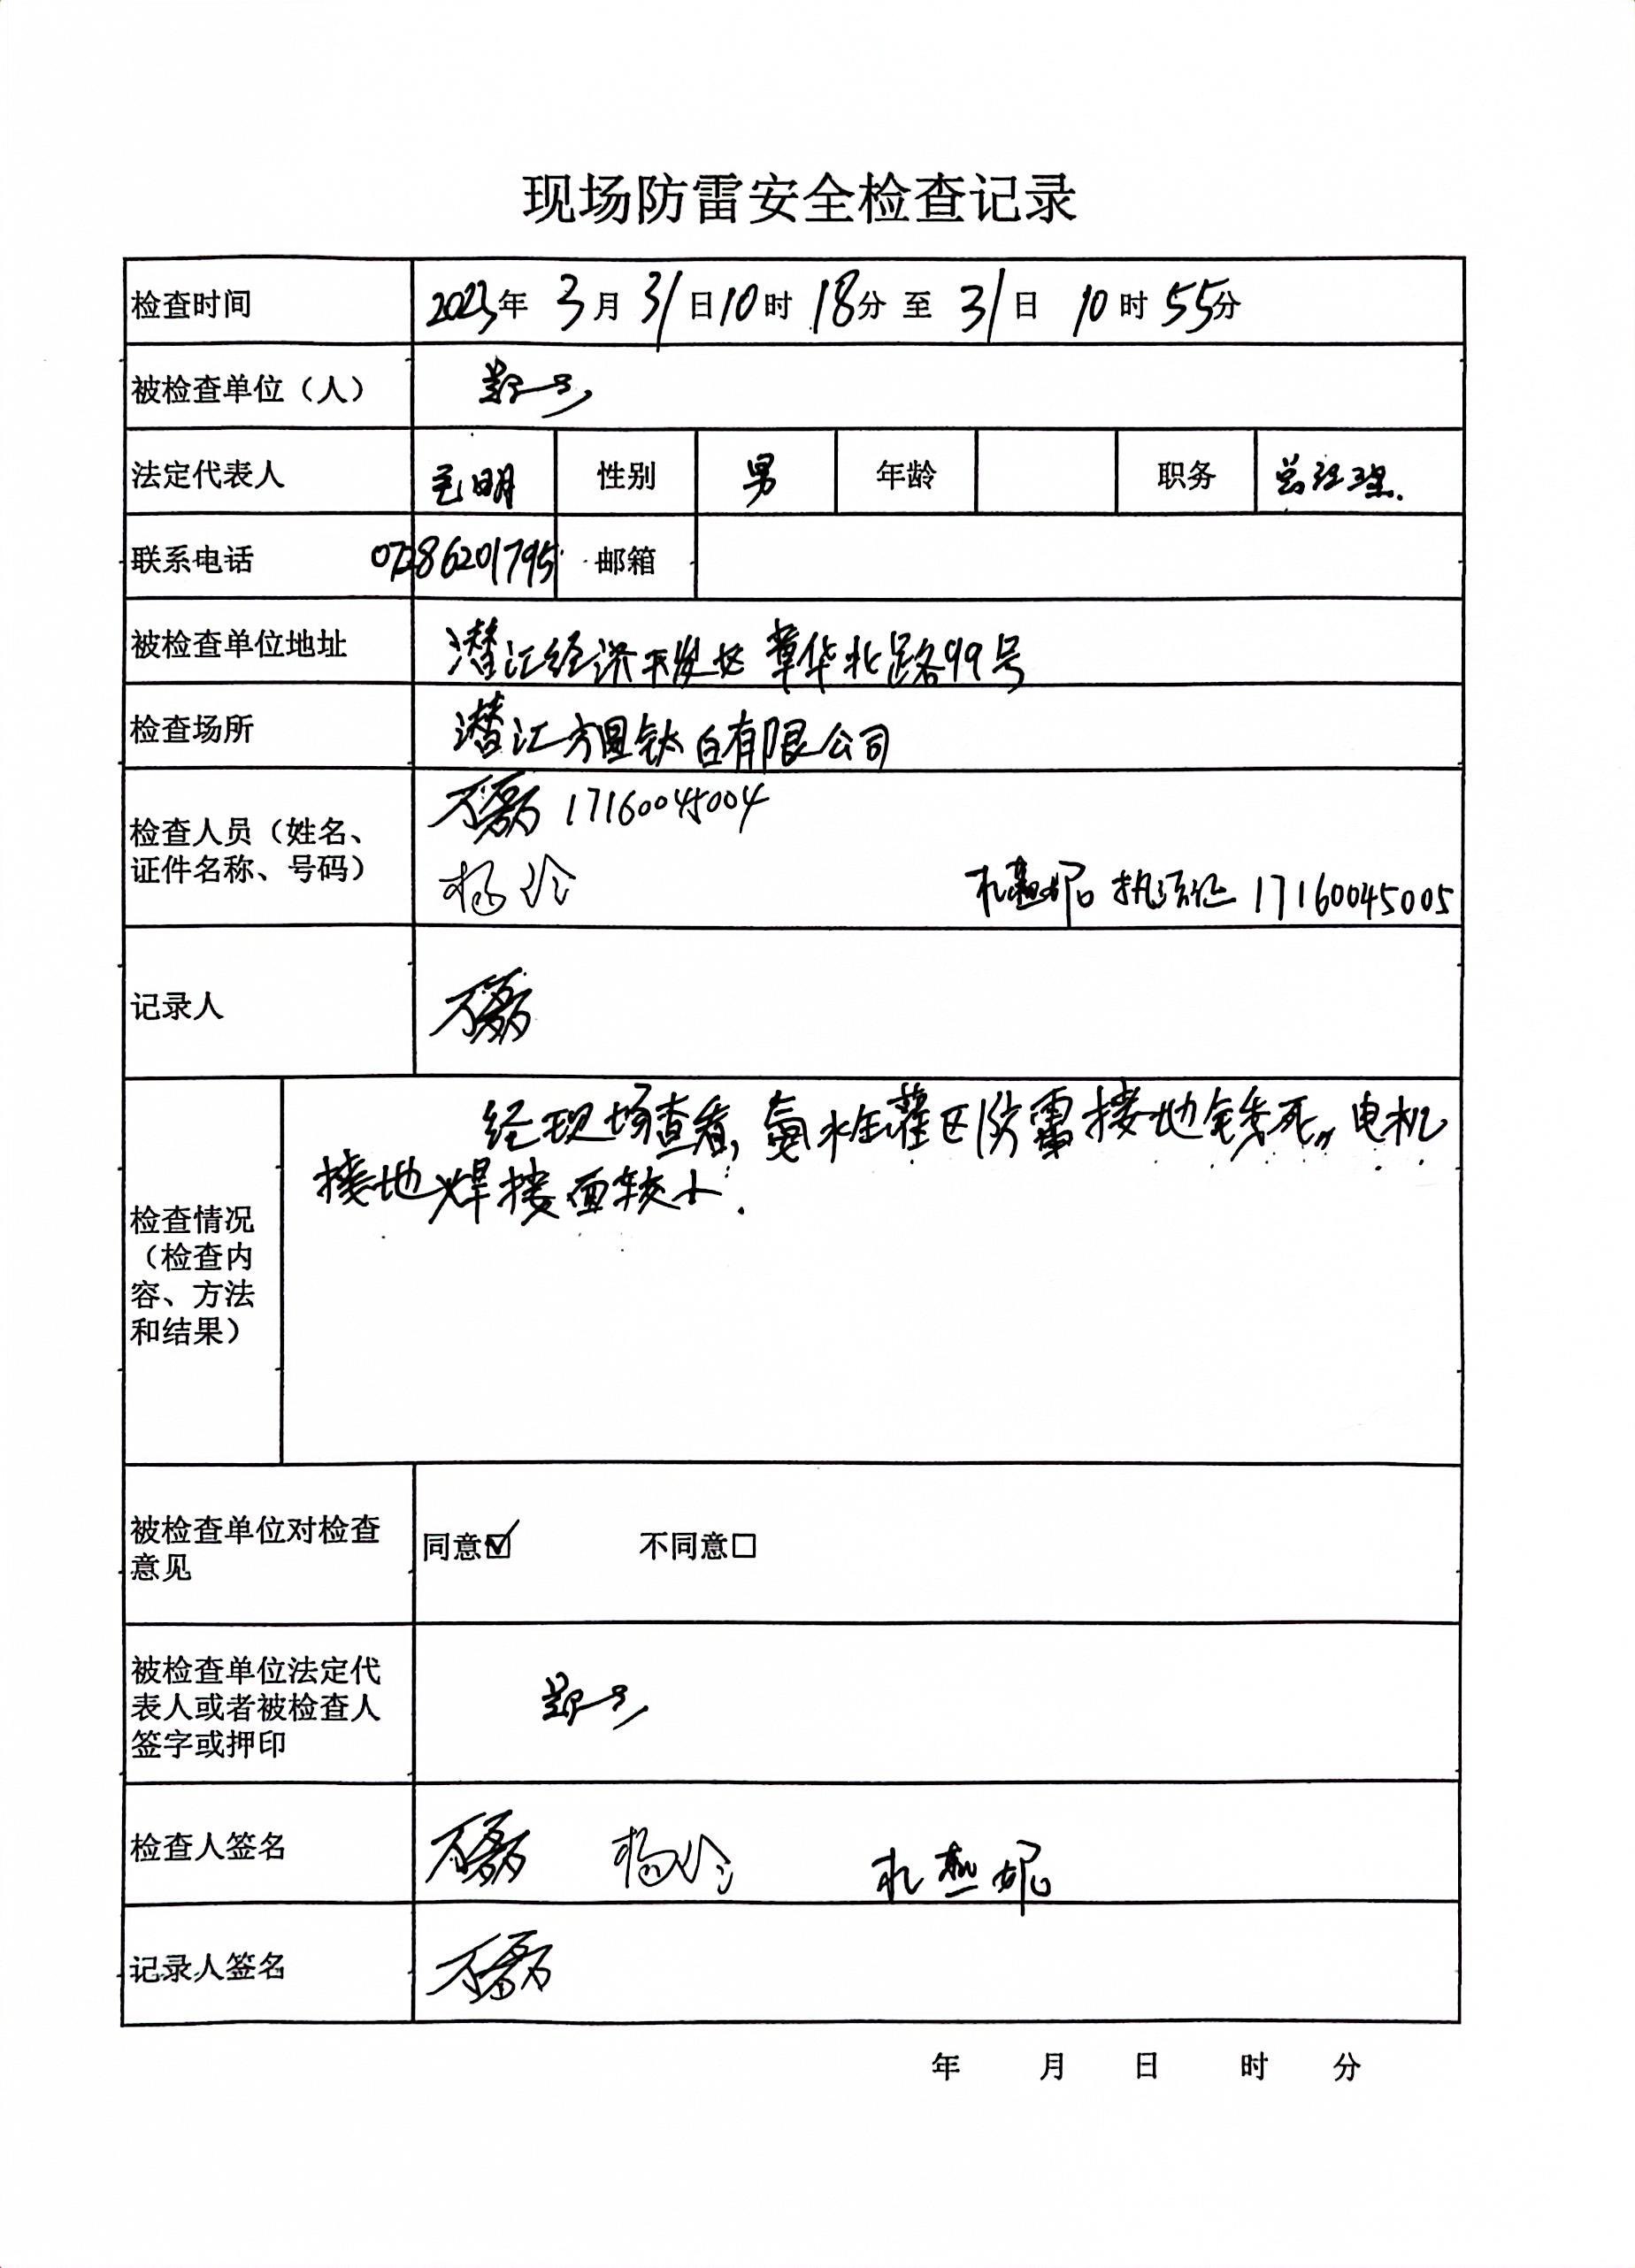 现场防雷安全检查记录
检查时间 2023年 3月 31日10时 18分 至 31日 10时 55分
被检查单位（人）
法定代表人 毛明 性别 男 年龄 职务 总经理.
联系电话 07286201795 邮箱
被检查单位地址 潜江经济开发区章华北路99号
检查场所 潜江方圆钛白有限公司
万磊 17160045004
检查人员（姓名、
证件名称、号码）
杨 执法证 17160045005
记录人 万磊
经现场查看，氨水罐区防雷接地锈死，电机
接地焊接面较小.
检查情况
（检查内
容、方法
和结果）
被检查单位对检查
意见
同意☑ 不同意□
被检查单位法定代
表人或者被检查人
签字或押印
检查人签名 万磊 杨
记录人签名 万磊
年 月 日 时 分